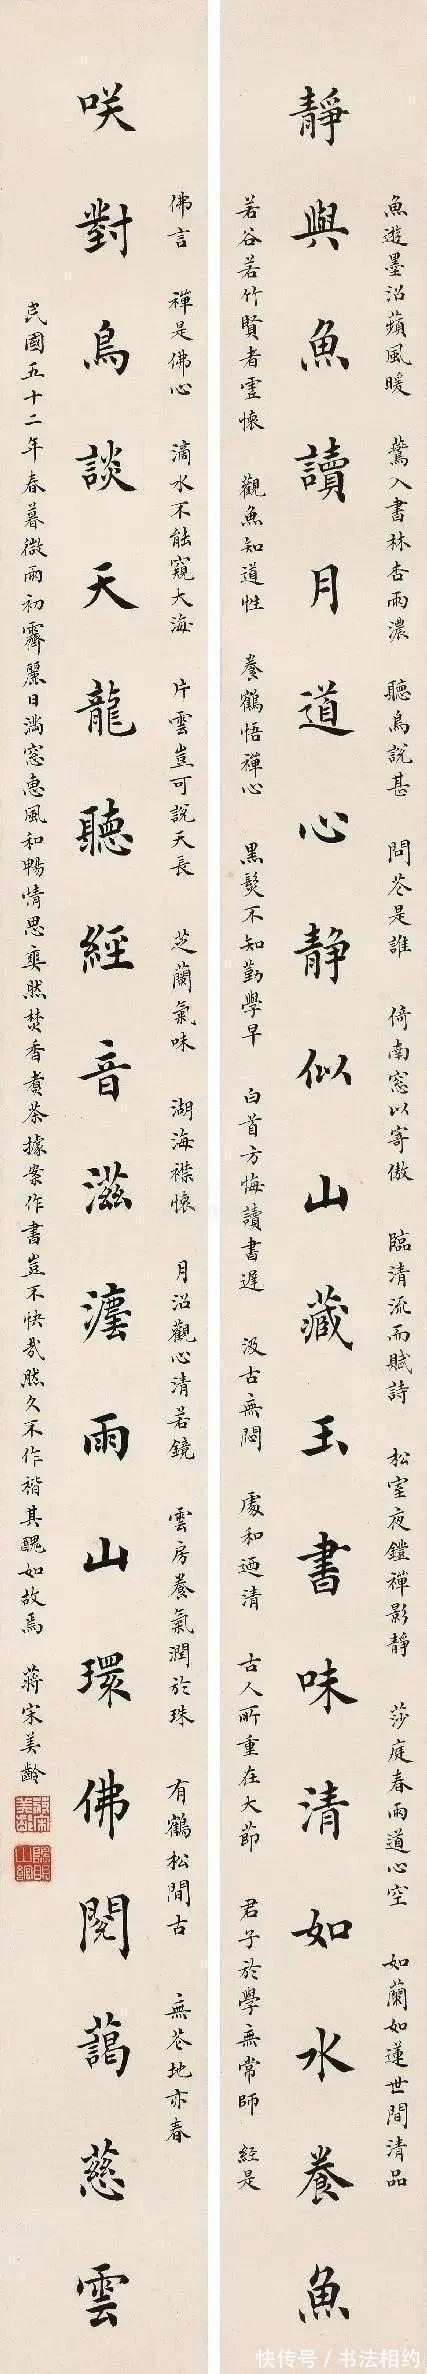 魚遊墨沼蘋風暖 鶯入書林杏雨濃 聽鳥說甚 問花是誰 倚南窓以寄傲 臨清流而賦詩 松室夜鐙禪影靜 莎庭春雨道心空 如蘭如蓮世間清品
靜與魚讀月道心静似山藏玉書味清如水養魚
若谷若竹賢者虛懷 觀魚知道性 養鶴悟禪心 黑髮不知勤學早 白首方悔讀書遲 汲古無悶 處和迺清 古人所重在大節 君子於學無常師 經是
佛言 禪是佛心 滴水不能窺大海 片雲豈可說天長 芝蘭氣味 湖海襟懷 月沼觀心清若鏡 雲房養氣潤於珠 有鶴松間古 無花地亦春
咲對鳥談天龍聽經音滋灋雨山環佛閣藹慈雲
民國五十二年春暮微雨初霽麗日滿窓惠風和暢情思奕然焚香煮茶據案作書豈不快哉然久不作楷其醜如故焉 蔣宋美齡
快传号 / 书法相约